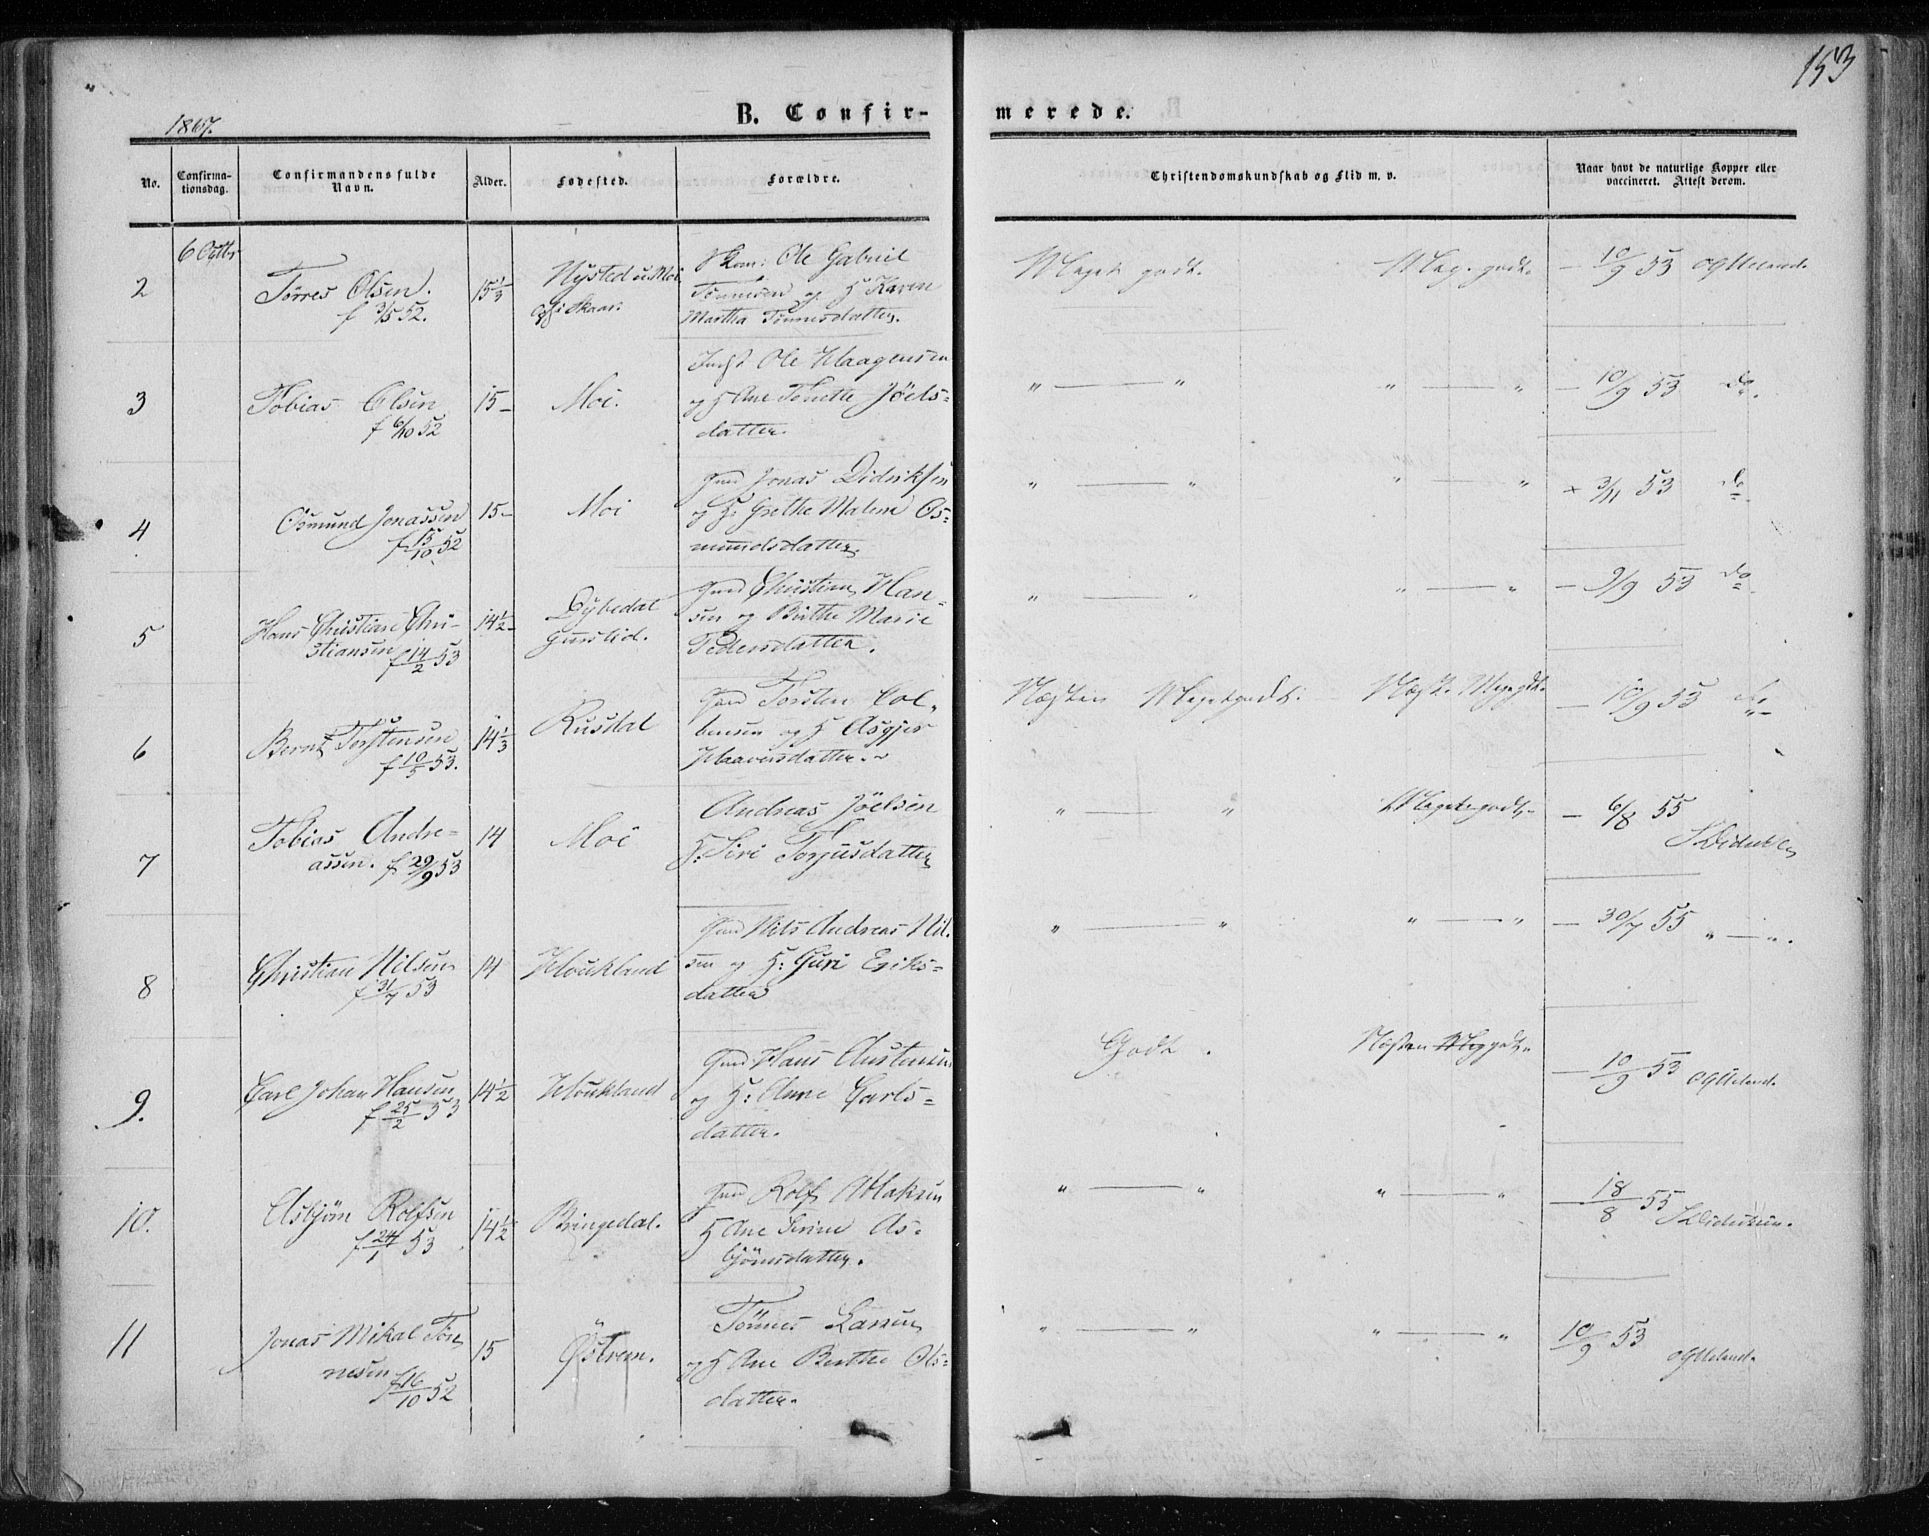 153
1867.
B. Confir-
merede.
No.
Confirma-
tionsdag.
Confirmandens fulde
Navn.
Alder.
Fødested.
Forældre.
Christendomskundskab og Flid m. v.
Naar havt de naturlige Kopper eller
vaccineret. Attest derom.
2
6 Octbr
Tørres Olsen.
f 3/5 52.
15 1/3
Nysted u. Moi
Skaar.
Ole Gabriel
Tønnesen og H Karen
Martha Tønnesdatter.
Meget godt.
Meg. godt.
10/9 53 OGUeland.
3
Tobias Olsen
f 6/10 52
15
Moi.
Indst Ole Haagensen
og H Ane Tonette Jöels-
datter.
" — "
" — "
10/9 53 do.
4
Osmund Jonassen
f 15/10 52
15
Moi
Gmd Jonas Didriksen
og H: Grethe Malene Os-
mundsdatter.
" — "
" — "
3/11 53 do
5
Hans Christian Chri-
stiansen f 14/2 53
14 1/2
Dybedal
Gmd Christian Han-
sen og Birthe Marie
Pedersdatter.
" — "
" — "
9/9 53 do
6
Bernt Torstensen
f 10/5 53.
14 1/3
Rusdal
Gmd Torsten Col-
bensen og H Asgjer
Haaversdatter.
Næsten Meget godt.
Næst. Meg. gdt.
10/9 53 do
7
Tobias Andre-
assen. f 29/9 53
14
Moi
Andreas Jöelsen
H: Siri Torjusdatter
" — "
Meget godt.
6/8 55
8
Christian Nilsen
f 31/7 53
14
Houkland
Gmd Nils Andreas Nil-
sen og H: Guri Eriks-
datter
" — "
" — "
30/7 55 " — ".
9.
Carl Johan Hansen
f 25/2 53
14 1/2
Houkland
Gmd Hans Austensen
og H: Anne Carls-
datter.
Godt.
Næsten Meg gdt.
10/9 53 OGUeland.
10.
Asbjörn Rolfsen
f 24/1 53
14 1/2
Bringedal.
Gmd Rolf Aslaksen
H Ane Serine As-
bjönsdatter.
" — "
" — "
18/8 55 S Didriksen.
11
Jonas Mikal Tøn
nesen
f 16/10 52
15
Østrem.
Tönnes Larsen
og H Ane Berthe Ols-
datter.
" — "
" — "
10/9 53
OGUeland.